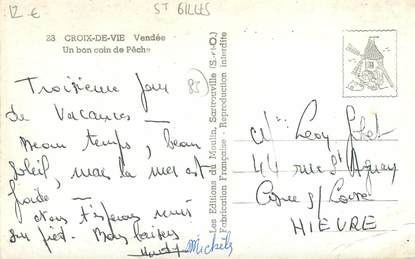 12 €
ST GILLES
23 CROIX-DE-VIE Vendée
Un bon coin de Pêche
85
Troisième Jour
de Vacances —
Beau temps, beau
soleil, mais la mer est
froide —
Nous t'espérons remis
sur pied. Bons baisers
Michèle
Les Editions du Moulin, Sartrouville (S.-et-O.)
Fabrication Française - Reproduction interdite
Léon
44 rue St Agnan
Cosne s/ Loire
NIEVRE